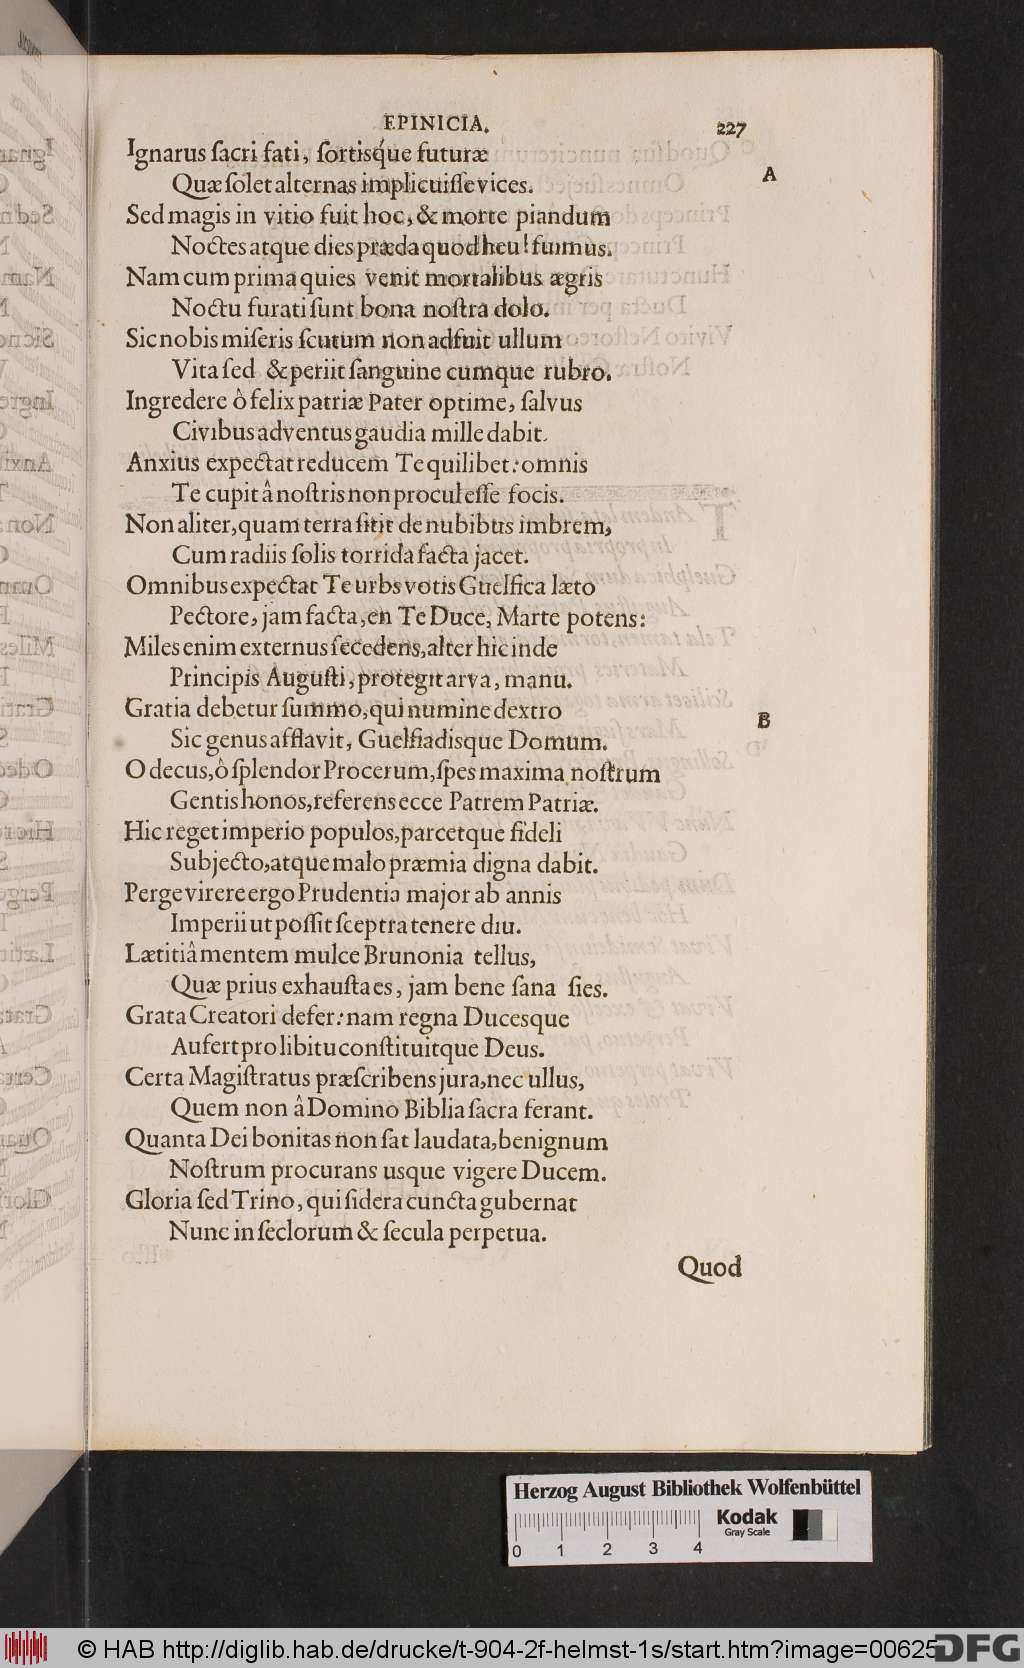 EPINICIA.
227
Ignarus ſacri fati, ſortisq́ue futuræ
A
Quæ ſolet alternas implicuiſſe vices.
Sed magis in vitio fuit hoc, & morte piandum
Noctes atque dies præda quod heu! fuimus.
Nam cum prima quies venit mortalibus ægris
Noctu furati ſunt bona noſtra dolo.
Sic nobis miſeris ſcutum non adfuit ullum
Vita ſed & periit ſanguine cumque rubro.
Ingredere ô felix patriæ Pater optime, ſalvus
Civibus adventus gaudia mille dabit.
Anxius expectat reducem Te quilibet: omnis
Te cupit â noſtris non procul eſſe focis.
Non aliter, quam terra ſitit de nubibus imbrem,
Cum radiis ſolis torrida facta jacet.
Omnibus expectat Te urbs votis Guelfica læto
Pectore, jam facta, en Te Duce, Marte potens:
Miles enim externus ſecedens, alter hic inde
Principis Auguſti, protegit arva, manu.
Gratia debetur ſummo, qui numine dextro
B
Sic genus afflavit, Guelfiadisque Domum.
O decus, ô ſplendor Procerum, ſpes maxima noſtrum
Gentis honos, referens ecce Patrem Patriæ.
Hic reget imperio populos, parcetque fideli
Subjecto, atque malo præmia digna dabit.
Perge virere ergo Prudentia major ab annis
Imperii ut poſſit ſceptra tenere diu.
Lætitiâ mentem mulce Brunonia tellus,
Quæ prius exhauſta es, jam bene ſana ſies.
Grata Creatori defer: nam regna Ducesque
Aufert pro libitu conſtituitque Deus.
Certa Magiſtratus præſcribens jura, nec ullus,
Quem non â Domino Biblia ſacra ferant.
Quanta Dei bonitas non ſat laudata, benignum
Noſtrum procurans usque vigere Ducem.
Gloria ſed Trino, qui ſidera cuncta gubernat
Nunc in ſeclorum & ſecula perpetua.
Quod
Herzog August Bibliothek Wolfenbüttel
Kodak
Gray Scale
0 1 2 3 4
© HAB http://diglib.hab.de/drucke/t-904-2f-helmst-1s/start.htm?image=00625
DFG